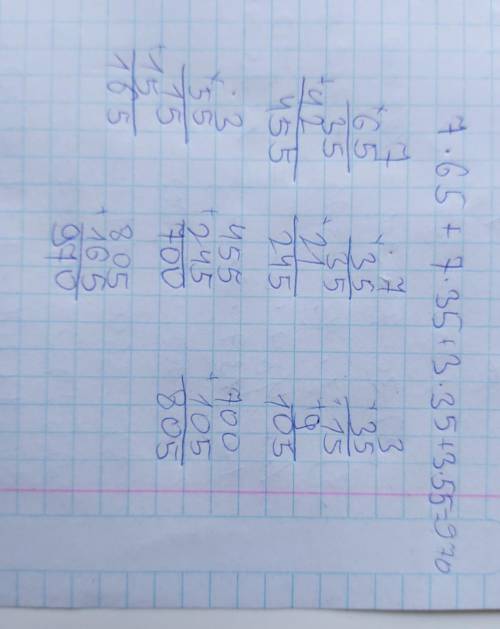 7·65 + 7·35+3·35+3·55=970
7
+65
35
+42
455
·7
+35
35
+21
245
3
·35
+15
9
105
·3
+55
15
+15
165
455
+245
700
700
+105
805
805
+165
970